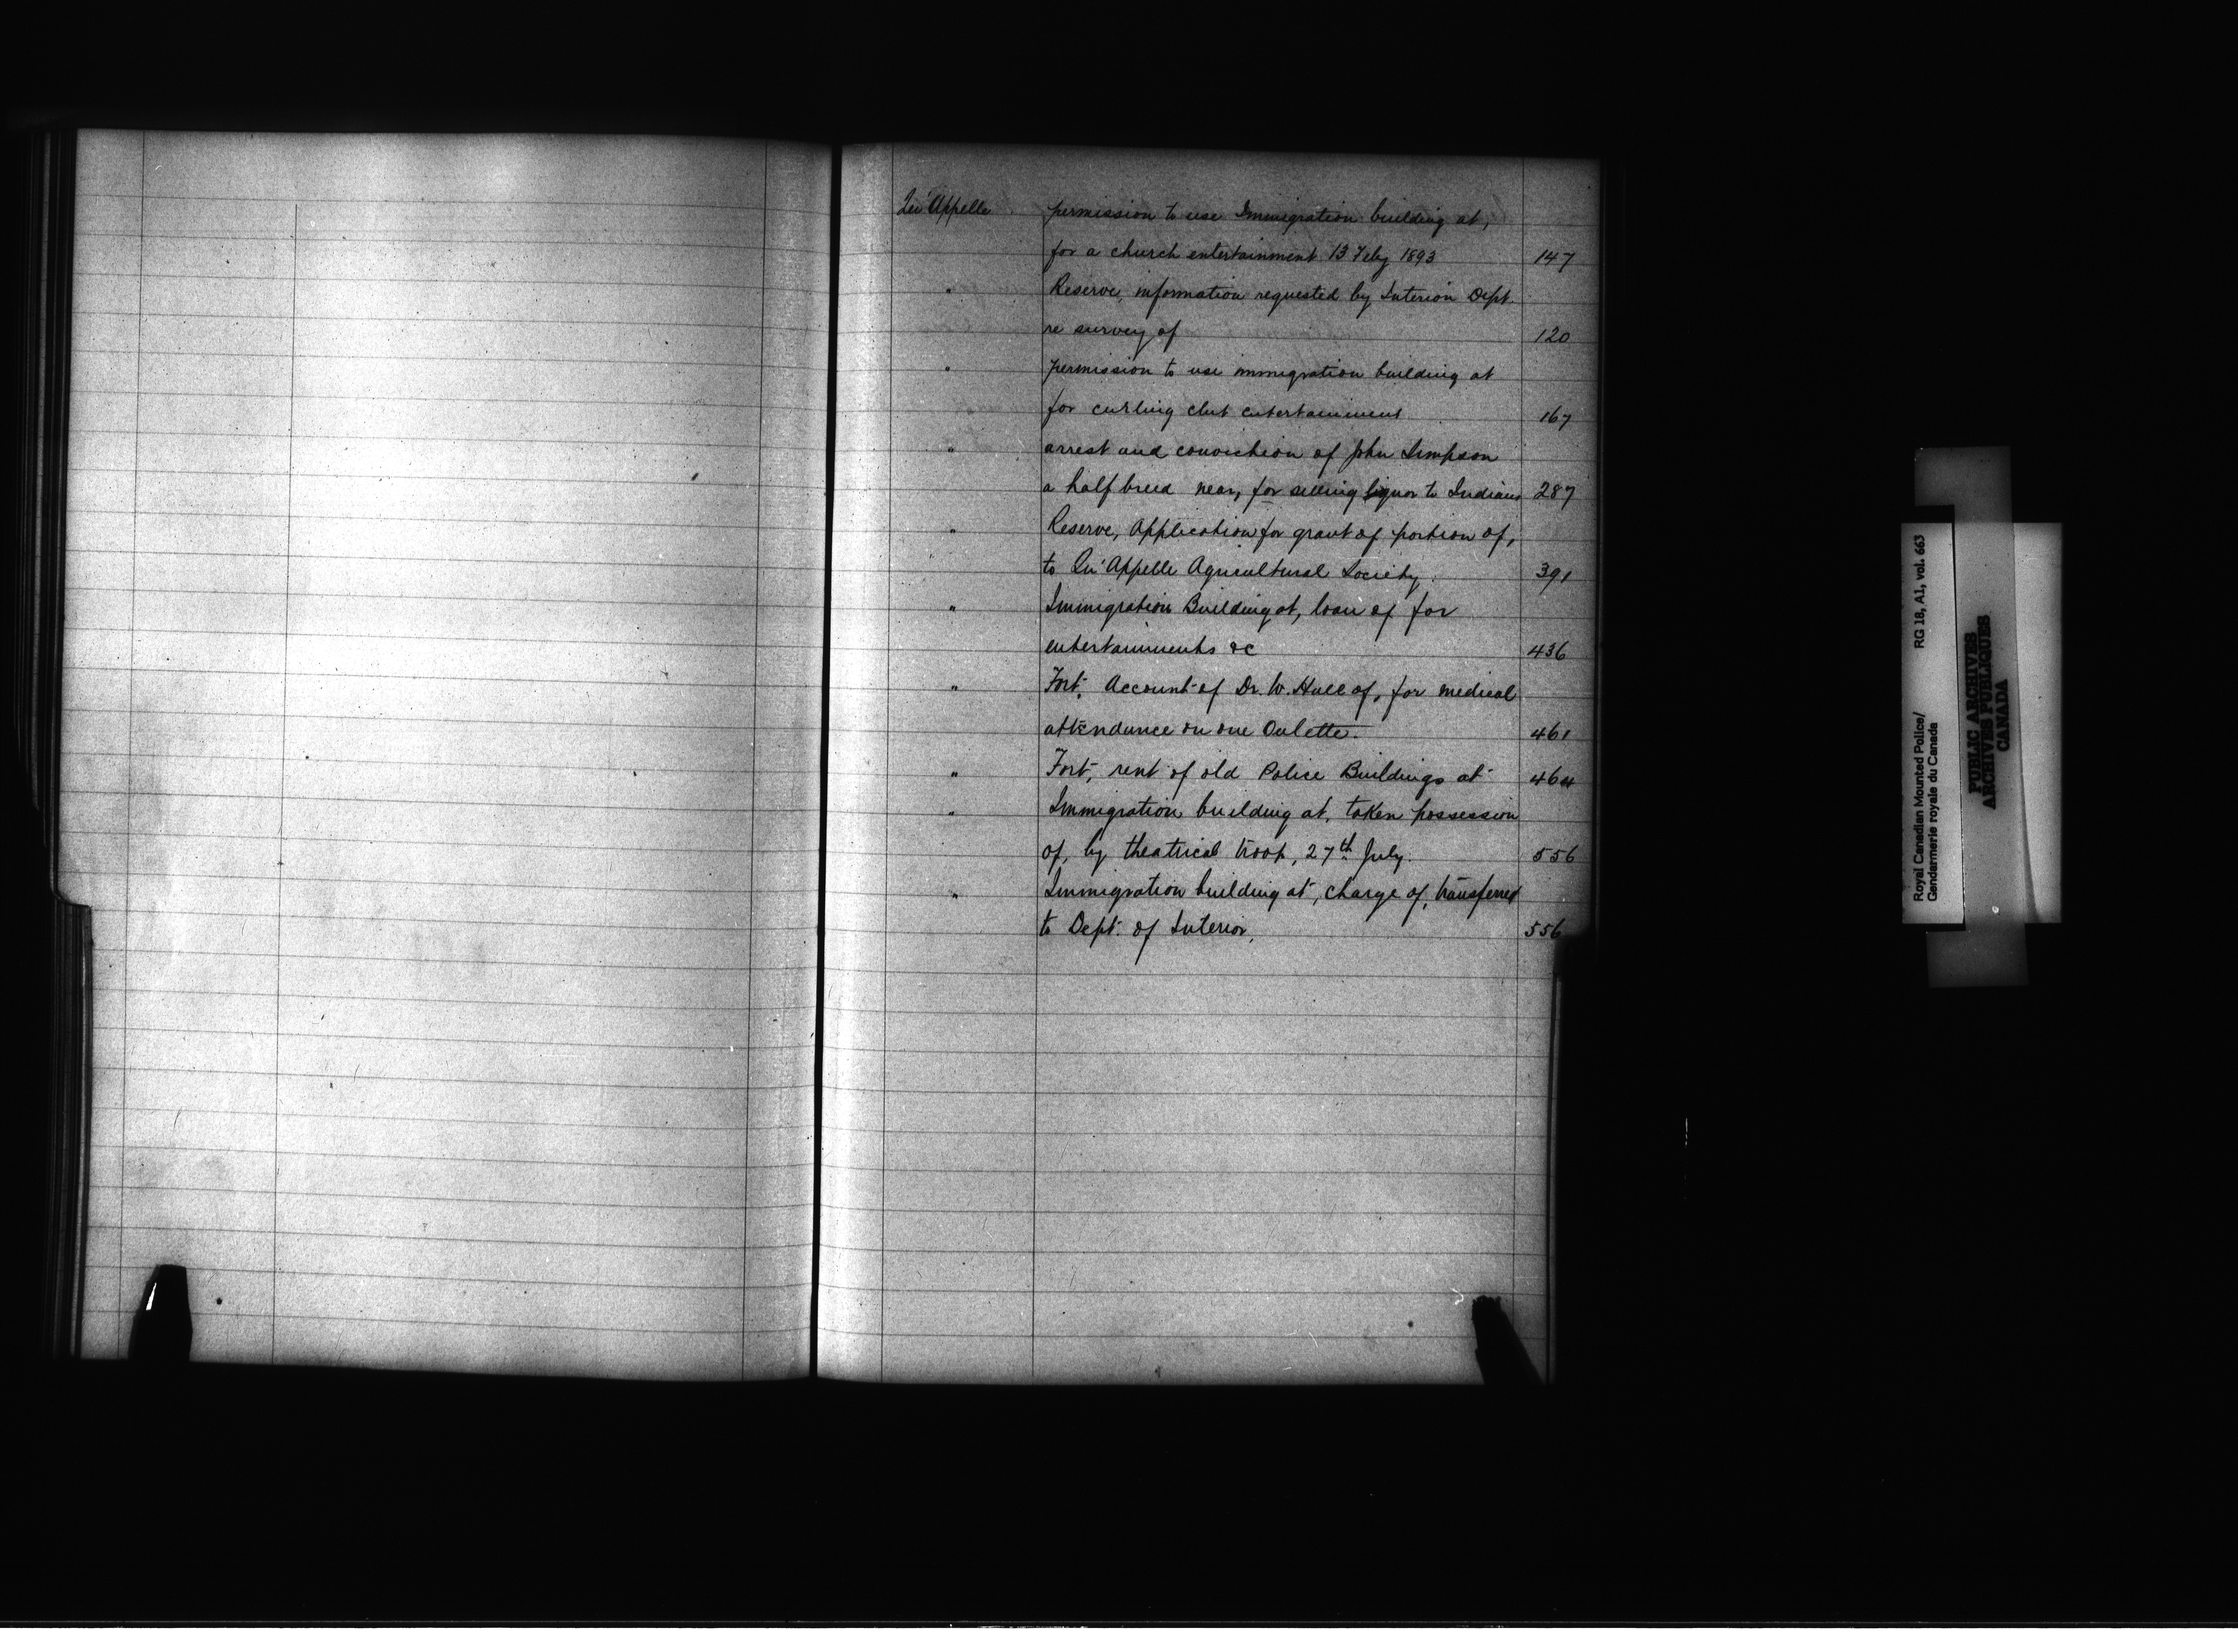 Qu'Appelle permission to use Immigration building at,
for a church entertainment 13 Feby 1893 147
" Reserve, information requested by Interior Dept.
re survey of 120
" permission to use immigration building at
for curling club entertainment 167
" arrest and conviction of John Simpson
a half breed near, for selling liquor to Indians 287
" Reserve, Application for grant of portion of,
to Qu'Appelle Agricultural Society. 391
" Immigration Building at, loan of for
entertainments &c 436
" Fort, Account of Dr. W. Hall of, for medical
attendance on one Oulette. 461
" Fort, rent of old Police Buildings at 464
" Immigration building at, taken possession
of, by theatrical troop, 27th July. 556
" Immigration building at, charge of, transferred
to Dept. of Interior. 556
Royal Canadian Mounted Police/ RG 18, A1, vol. 663
Gendarmerie royale du Canada
PUBLIC ARCHIVES
ARCHIVES PUBLIQUES
CANADA